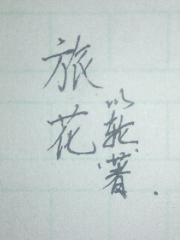 旅花
以轮著.